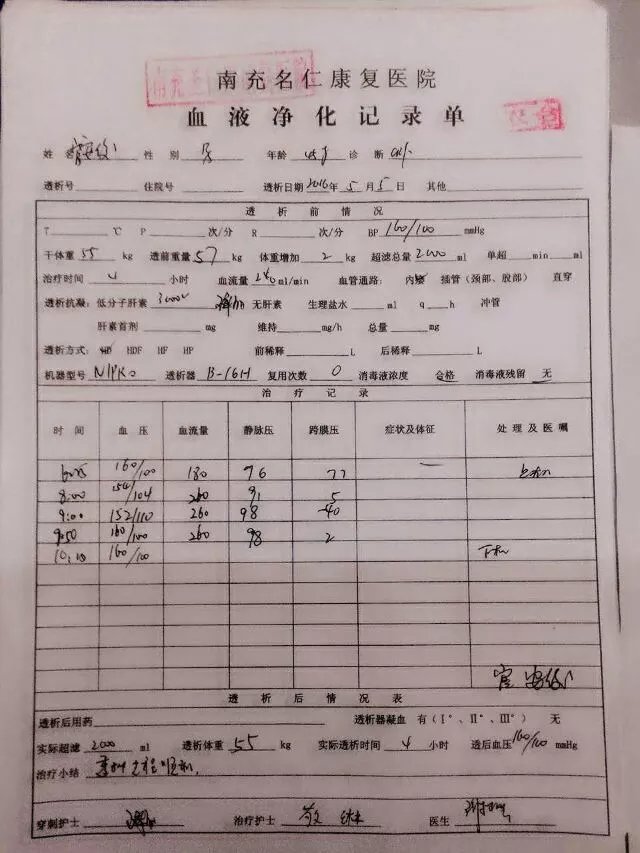 南充名仁康复医院
血液净化记录单
姓名 性别 男 年龄 诊断
透析号 住院号 透析日期 2016年5月5日 其他
透析前情况
T ℃ P 次/分 R 次/分 BP 160/100 mmHg
干体重 55 kg 透前重量 57 kg 体重增加 2 kg 超滤总量 2000 ml 单超 min ml
治疗时间 4 小时 血流量 260 ml/min 血管通路: 内瘘 插管(颈部、股部) 直穿
透析抗凝: 低分子肝素 3000u 无肝素 生理盐水 ml q h 冲管
肝素首剂 mg 维持 mg/h 总量 mg
透析方式: HD HDF HF HP 前稀释 L 后稀释 L
机器型号 NIPRO 透析器 B-16H 复用次数 0 消毒液浓度 合格 消毒液残留 无
治疗记录
时间 血压 血流量 静脉压 跨膜压 症状及体征 处理及医嘱
160/100 180 76 77 — 上机
8:00 154/104 260 91 5
9:00 152/110 260 98 40
9:50 160/100 260 98 2
10:10 160/100 下机
透析后情况表
透析后用药 透析器凝血 有(Ⅰ°、Ⅱ°、Ⅲ°) 无
实际超滤 2000 ml 透析体重 55 kg 实际透析时间 4 小时 透后血压 160/100 mmHg
治疗小结
穿刺护士 治疗护士 医生